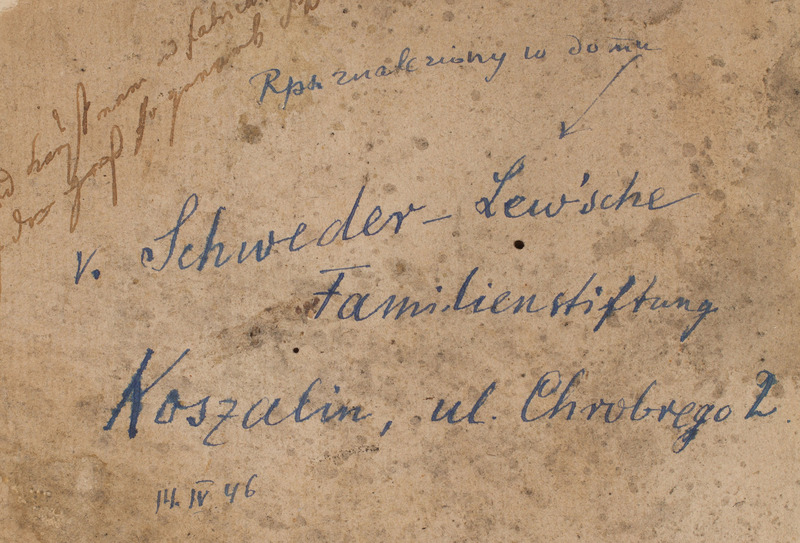 Rps znaleziony w domu
v. Schweder-Lew'sche
Familienstiftung
Koszalin, ul. Chrobrego 2
14. IV 46